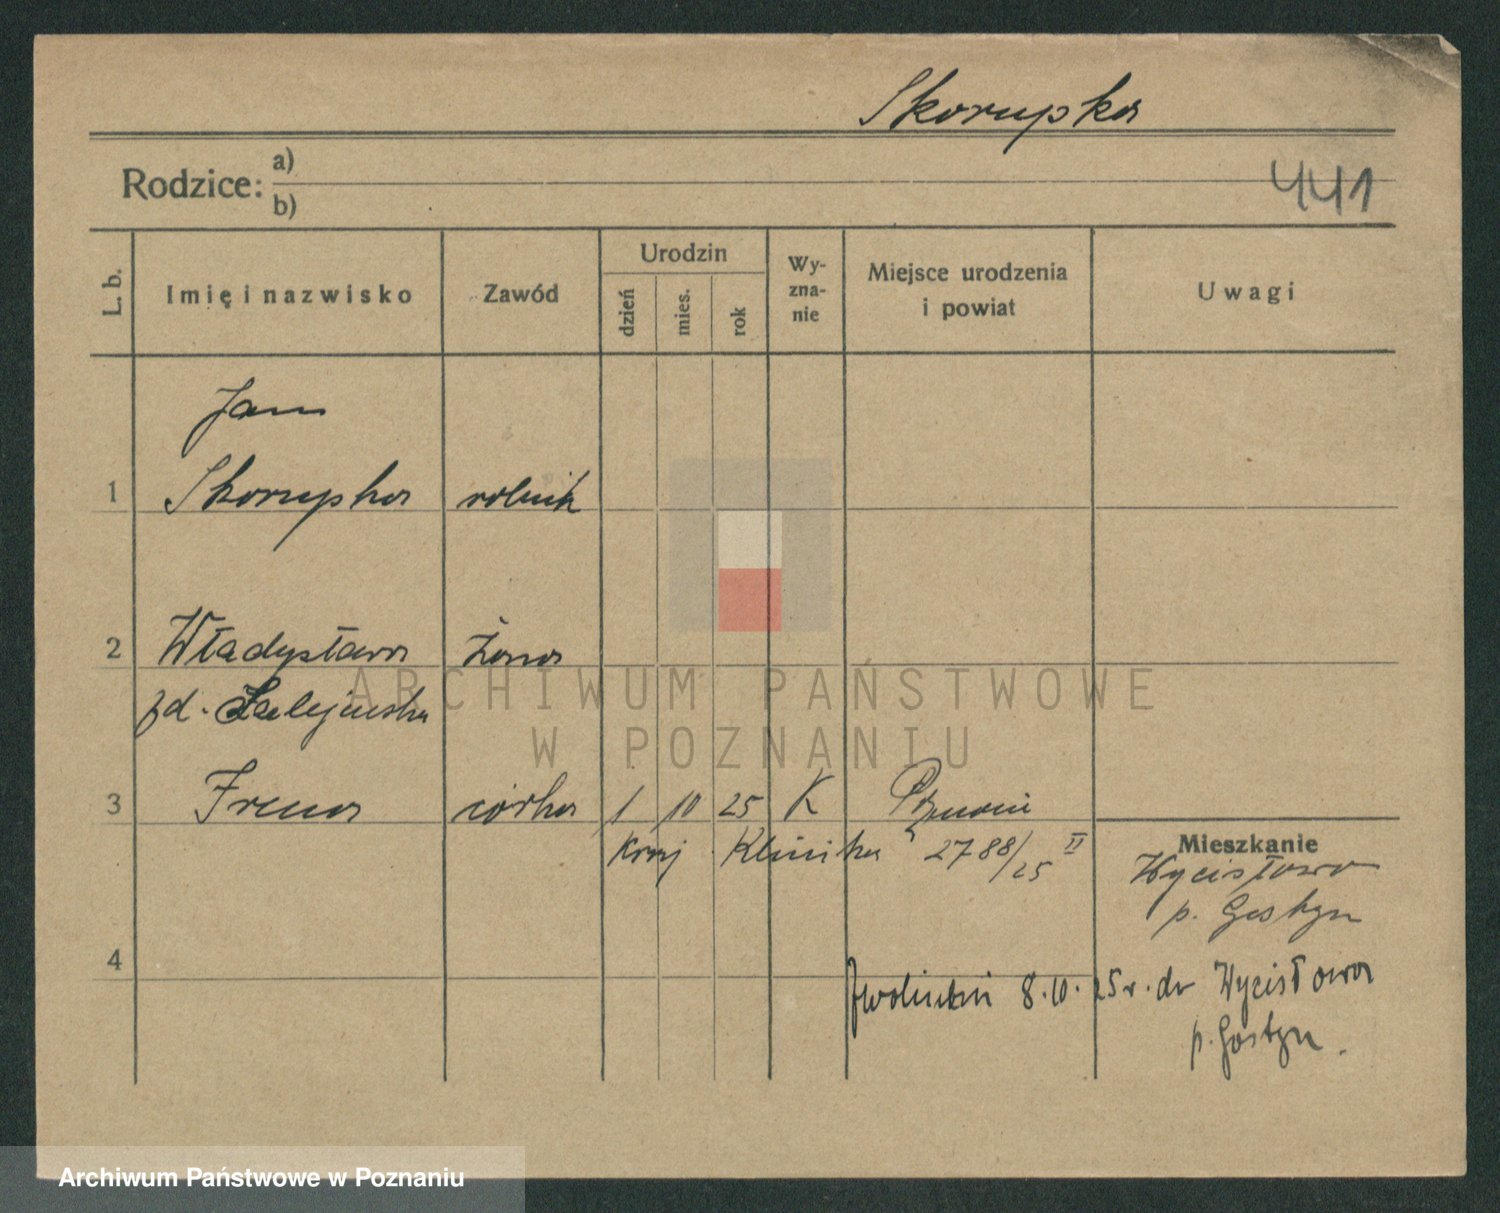 Skorupka
441
Rodzice: a)
b)
L. b. Imię i nazwisko Zawód Urodzin dzień mies. rok Wy-zna-nie Miejsce urodzenia i powiat Uwagi
Jan
1 Skorupka rolnik
2 Władysława żona
zd.
3 Irena córka 1 10 25 K Poznań
Kraj Klinika 2788/25 II
Mieszkanie
Wycisłowo
p. Gostyn
4
8.10.25r. do Wycisłowa
p. Gostyn.
ARCHIWUM PAŃSTWOWE
W POZNANIU
Archiwum Państwowe w Poznaniu